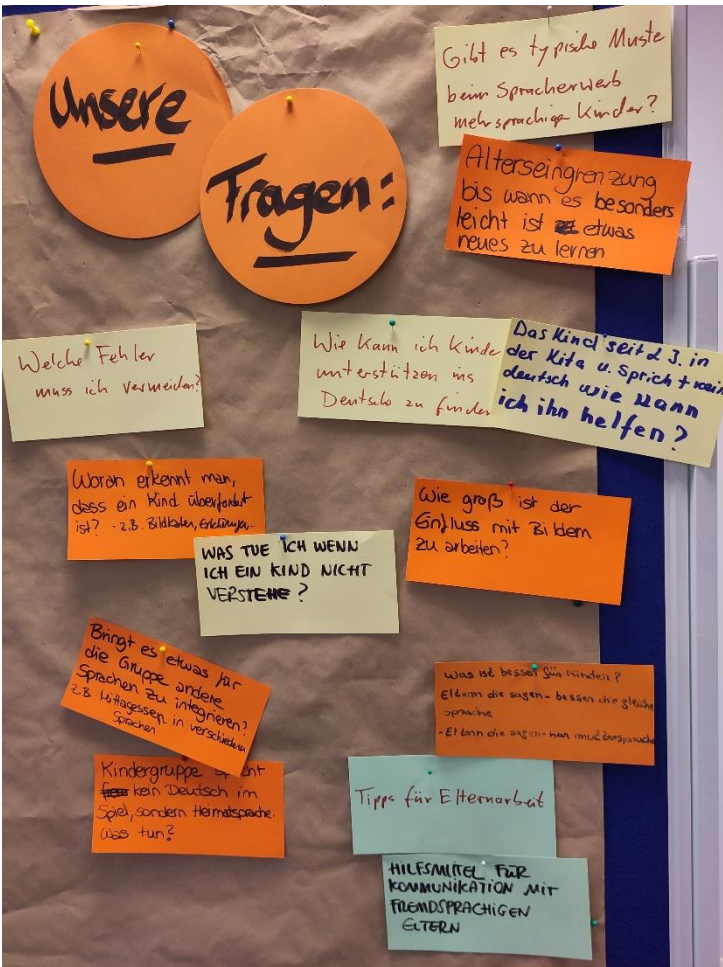 Unsere
Fragen:
Gibt es typische Muste
beim Spracherwerb
mehrsprachige Kinder?
Alterseingrenzung
bis wann es besonders
leicht ist etwas
neues zu lernen
Welche Fehler
muss ich vermeiden?
Wie kann ich Kinde
unterstützen ins
Deutsch zu finden
Das Kind seit 2 J. in
der Kita u. Spricht kein
deutsch wie kann
ich ihn helfen?
Woran erkennt man,
dass ein Kind überfordert
ist? - z.B. Bildkarten, Erklärungen...
WAS TUE ICH WENN
ICH EIN KIND NICHT
VERSTEHE?
Wie groß ist der
Einfluss mit Bildern
zu arbeiten?
Bringt es etwas für
die Gruppe andere
Sprachen zu integrieren?
z.B Mittagessen in verschieden
Sprachen
Was ist besser für Kinder?
Eltern die sagen - besser die gleiche
Sprache
- Eltern die sagen - nur muttersprache
Kindergruppe
kein Deutsch im
Spiel, sondern Heimatsprache.
Was tun?
Tipps für Elternarbeit
HILFSMITTEL FÜR
KOMMUNIKATION MIT
FREMDSPRACHIGEN
ELTERN